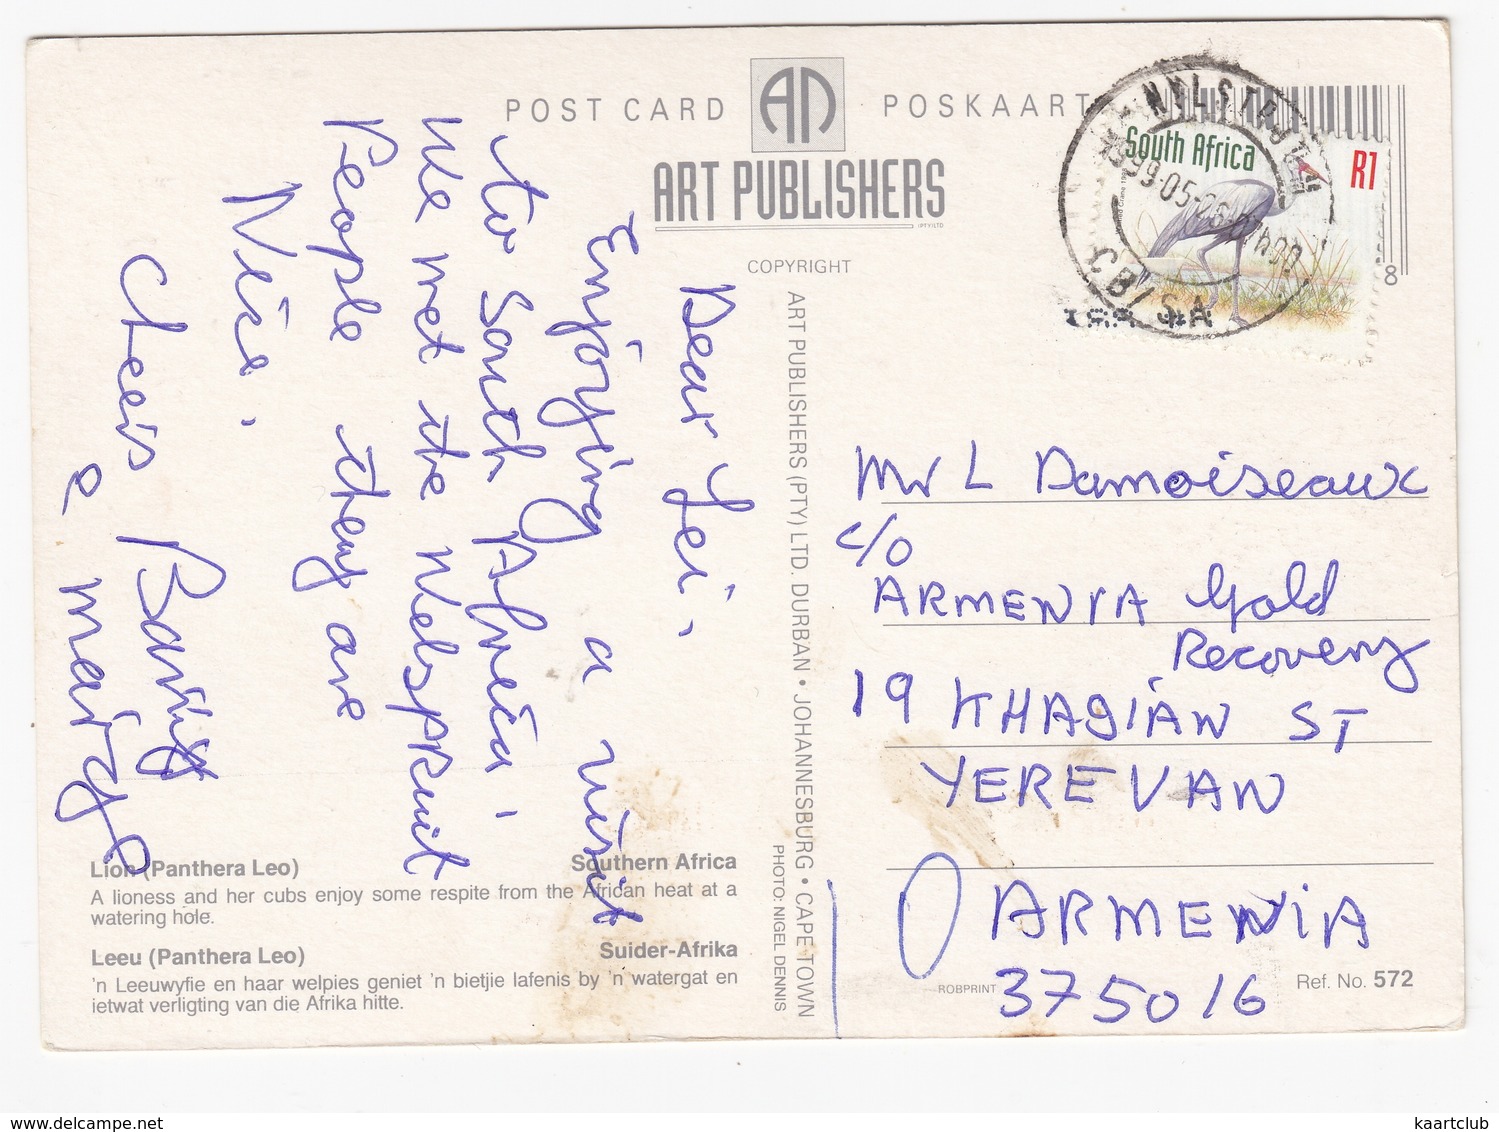 POST CARD
AN
POSKAART
ART PUBLISHERS
(PTY) LTD
COPYRIGHT
NYLSTROOM
1999-05-26
CB/SA
South Africa
R1
8
Dear Lei,
Enjoying a visit
to South Africa.
We met the Nelspruit
People they are
Nice.
Cheers Barry
& Marge
ART PUBLISHERS (PTY) LTD. DURBAN • JOHANNESBURG • CAPE TOWN
PHOTO: NIGEL DENNIS
Mr L Damoiseaux
c/o
ARMENIA Gold
Recovery
19 KHAGIAN ST
YEREVAN
ARMENIA
375016
Lion (Panthera Leo) Southern Africa
A lioness and her cubs enjoy some respite from the African heat at a
watering hole.
Leeu (Panthera Leo) Suider-Afrika
'n Leeuwyfie en haar welpies geniet 'n bietjie lafenis by 'n watergat en
ietwat verligting van die Afrika hitte.
ROBPRINT
Ref. No. 572
delcampe.net
kaartclub